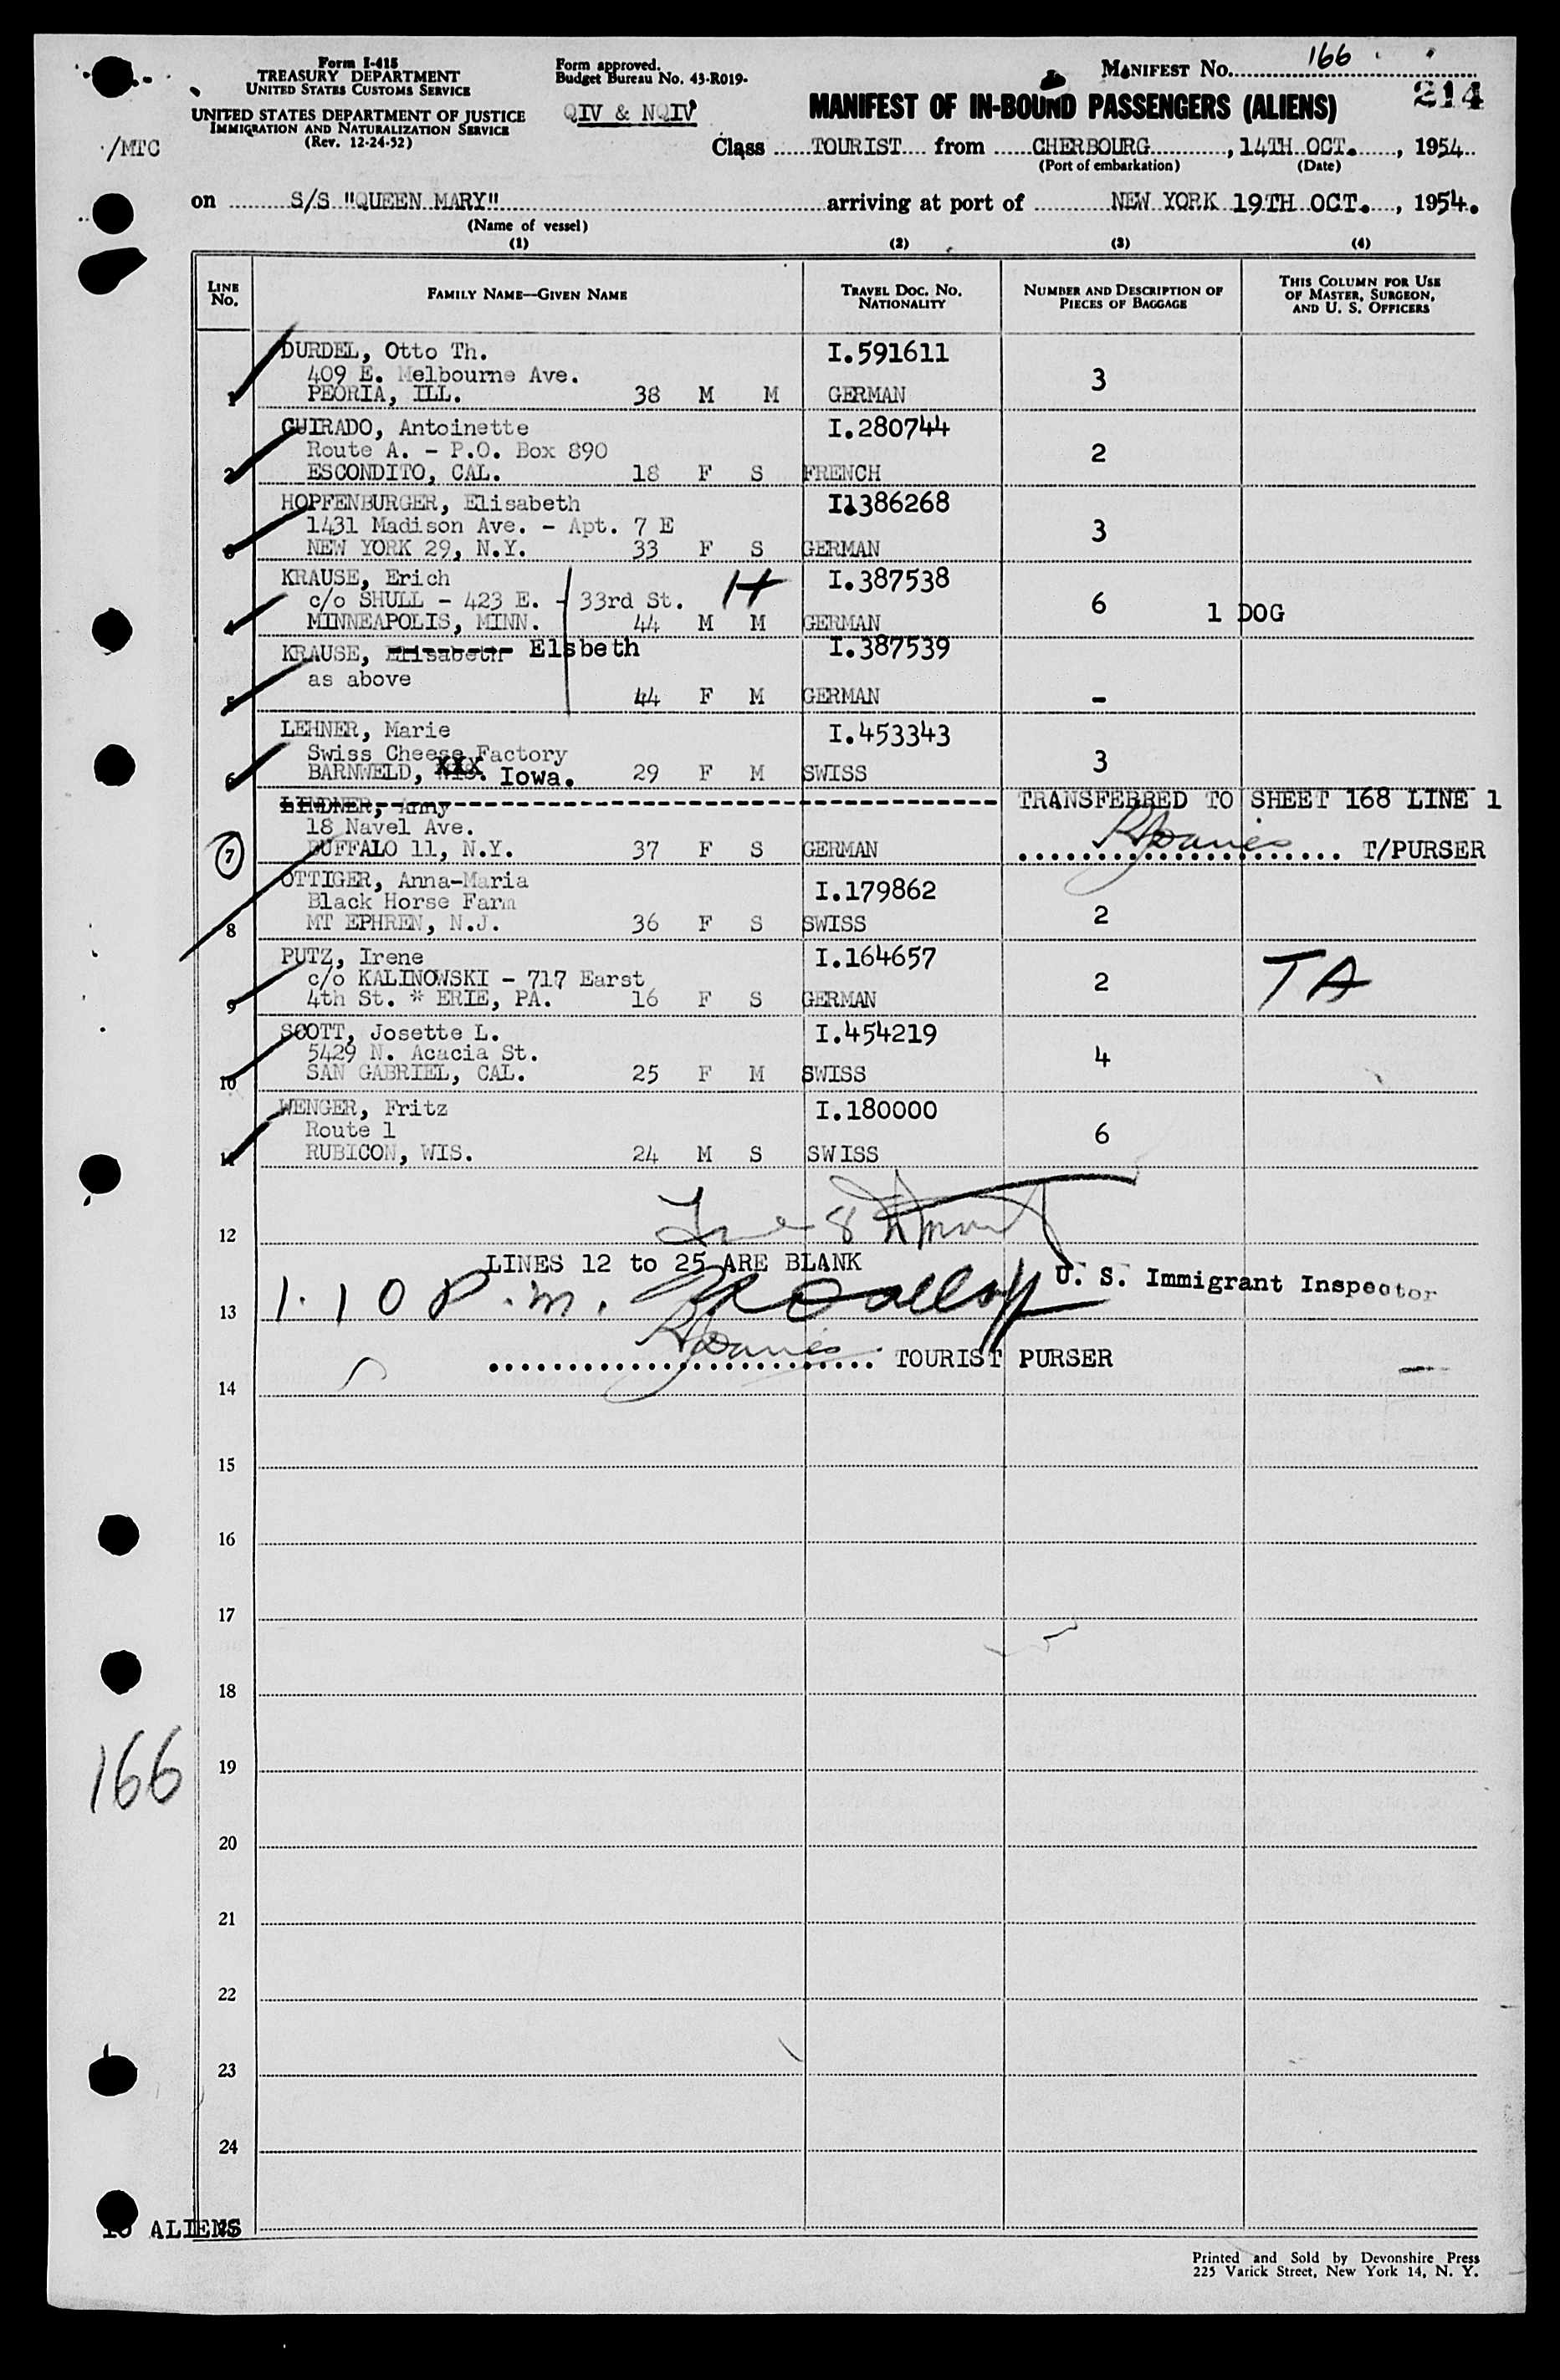 Form I-415
TREASURY DEPARTMENT
UNITED STATES CUSTOMS SERVICE
UNITED STATES DEPARTMENT OF JUSTICE
IMMIGRATION AND NATURALIZATION SERVICE
(Rev. 12-24-52)
/MTC
Form approved.
Budget Bureau No. 43-R019-
QIV & NQIV
MANIFEST NO. 166
214
MANIFEST OF IN-BOUND PASSENGERS (ALIENS)
Class TOURIST from CHERBOURG, 14TH OCT., 1954
(Port of embarkation) (Date)
on S/S "QUEEN MARY" arriving at port of NEW YORK 19TH OCT., 1954.
(Name of vessel)
(1) (2) (3) (4)
LINE NO. FAMILY NAME—GIVEN NAME TRAVEL DOC. NO. NATIONALITY NUMBER AND DESCRIPTION OF PIECES OF BAGGAGE THIS COLUMN FOR USE OF MASTER, SURGEON, AND U. S. OFFICERS
DURDEL, Otto Th. I.591611
409 E. Melbourne Ave. 3
1 PEORIA, ILL. 38 M M GERMAN
GUIRADO, Antoinette I.280744
Route A. - P.O. Box 890 2
2 ESCONDITO, CAL. 18 F S FRENCH
HOPFENBURGER, Elisabeth I.386268
1431 Madison Ave. - Apt. 7 E 3
3 NEW YORK 29, N.Y. 33 F S GERMAN
KRAUSE, Erich H I.387538
c/o SHULL - 423 E. - 33rd St. 6 1 DOG
4 MINNEAPOLIS, MINN. 44 M M GERMAN
KRAUSE, Elisabeth Elsbeth I.387539
as above
5 44 F M GERMAN -
LEHNER, Marie I.453343
Swiss Cheese Factory 3
6 BARNWELD, WIS. XXX Iowa. 29 F M SWISS
LINDNER, Anny TRANSFERRED TO SHEET 168 LINE 1
18 Navel Ave.
7 BUFFALO 11, N.Y. 37 F S GERMAN T/PURSER
OTTIGER, Anna-Maria I.179862
Black Horse Farm 2
8 MT EPHREN, N.J. 36 F S SWISS
PUTZ, Irene I.164657
c/o KALINOWSKI - 717 Earst 2 TA
9 4th St. * ERIE, PA. 16 F S GERMAN
SCOTT, Josette L. I.454219
5429 N. Acacia St. 4
10 SAN GABRIEL, CAL. 25 F M SWISS
WENGER, Fritz I.180000
Route 1 6
11 RUBICON, WIS. 24 M S SWISS
12
LINES 12 to 25 ARE BLANK
U. S. Immigrant Inspector
13 1.10 P.m.
TOURIST PURSER
14
15
16
17
18
19
166
20
21
22
23
24
10 ALIENS 25
Printed and Sold by Devonshire Press
225 Varick Street, New York 14, N. Y.